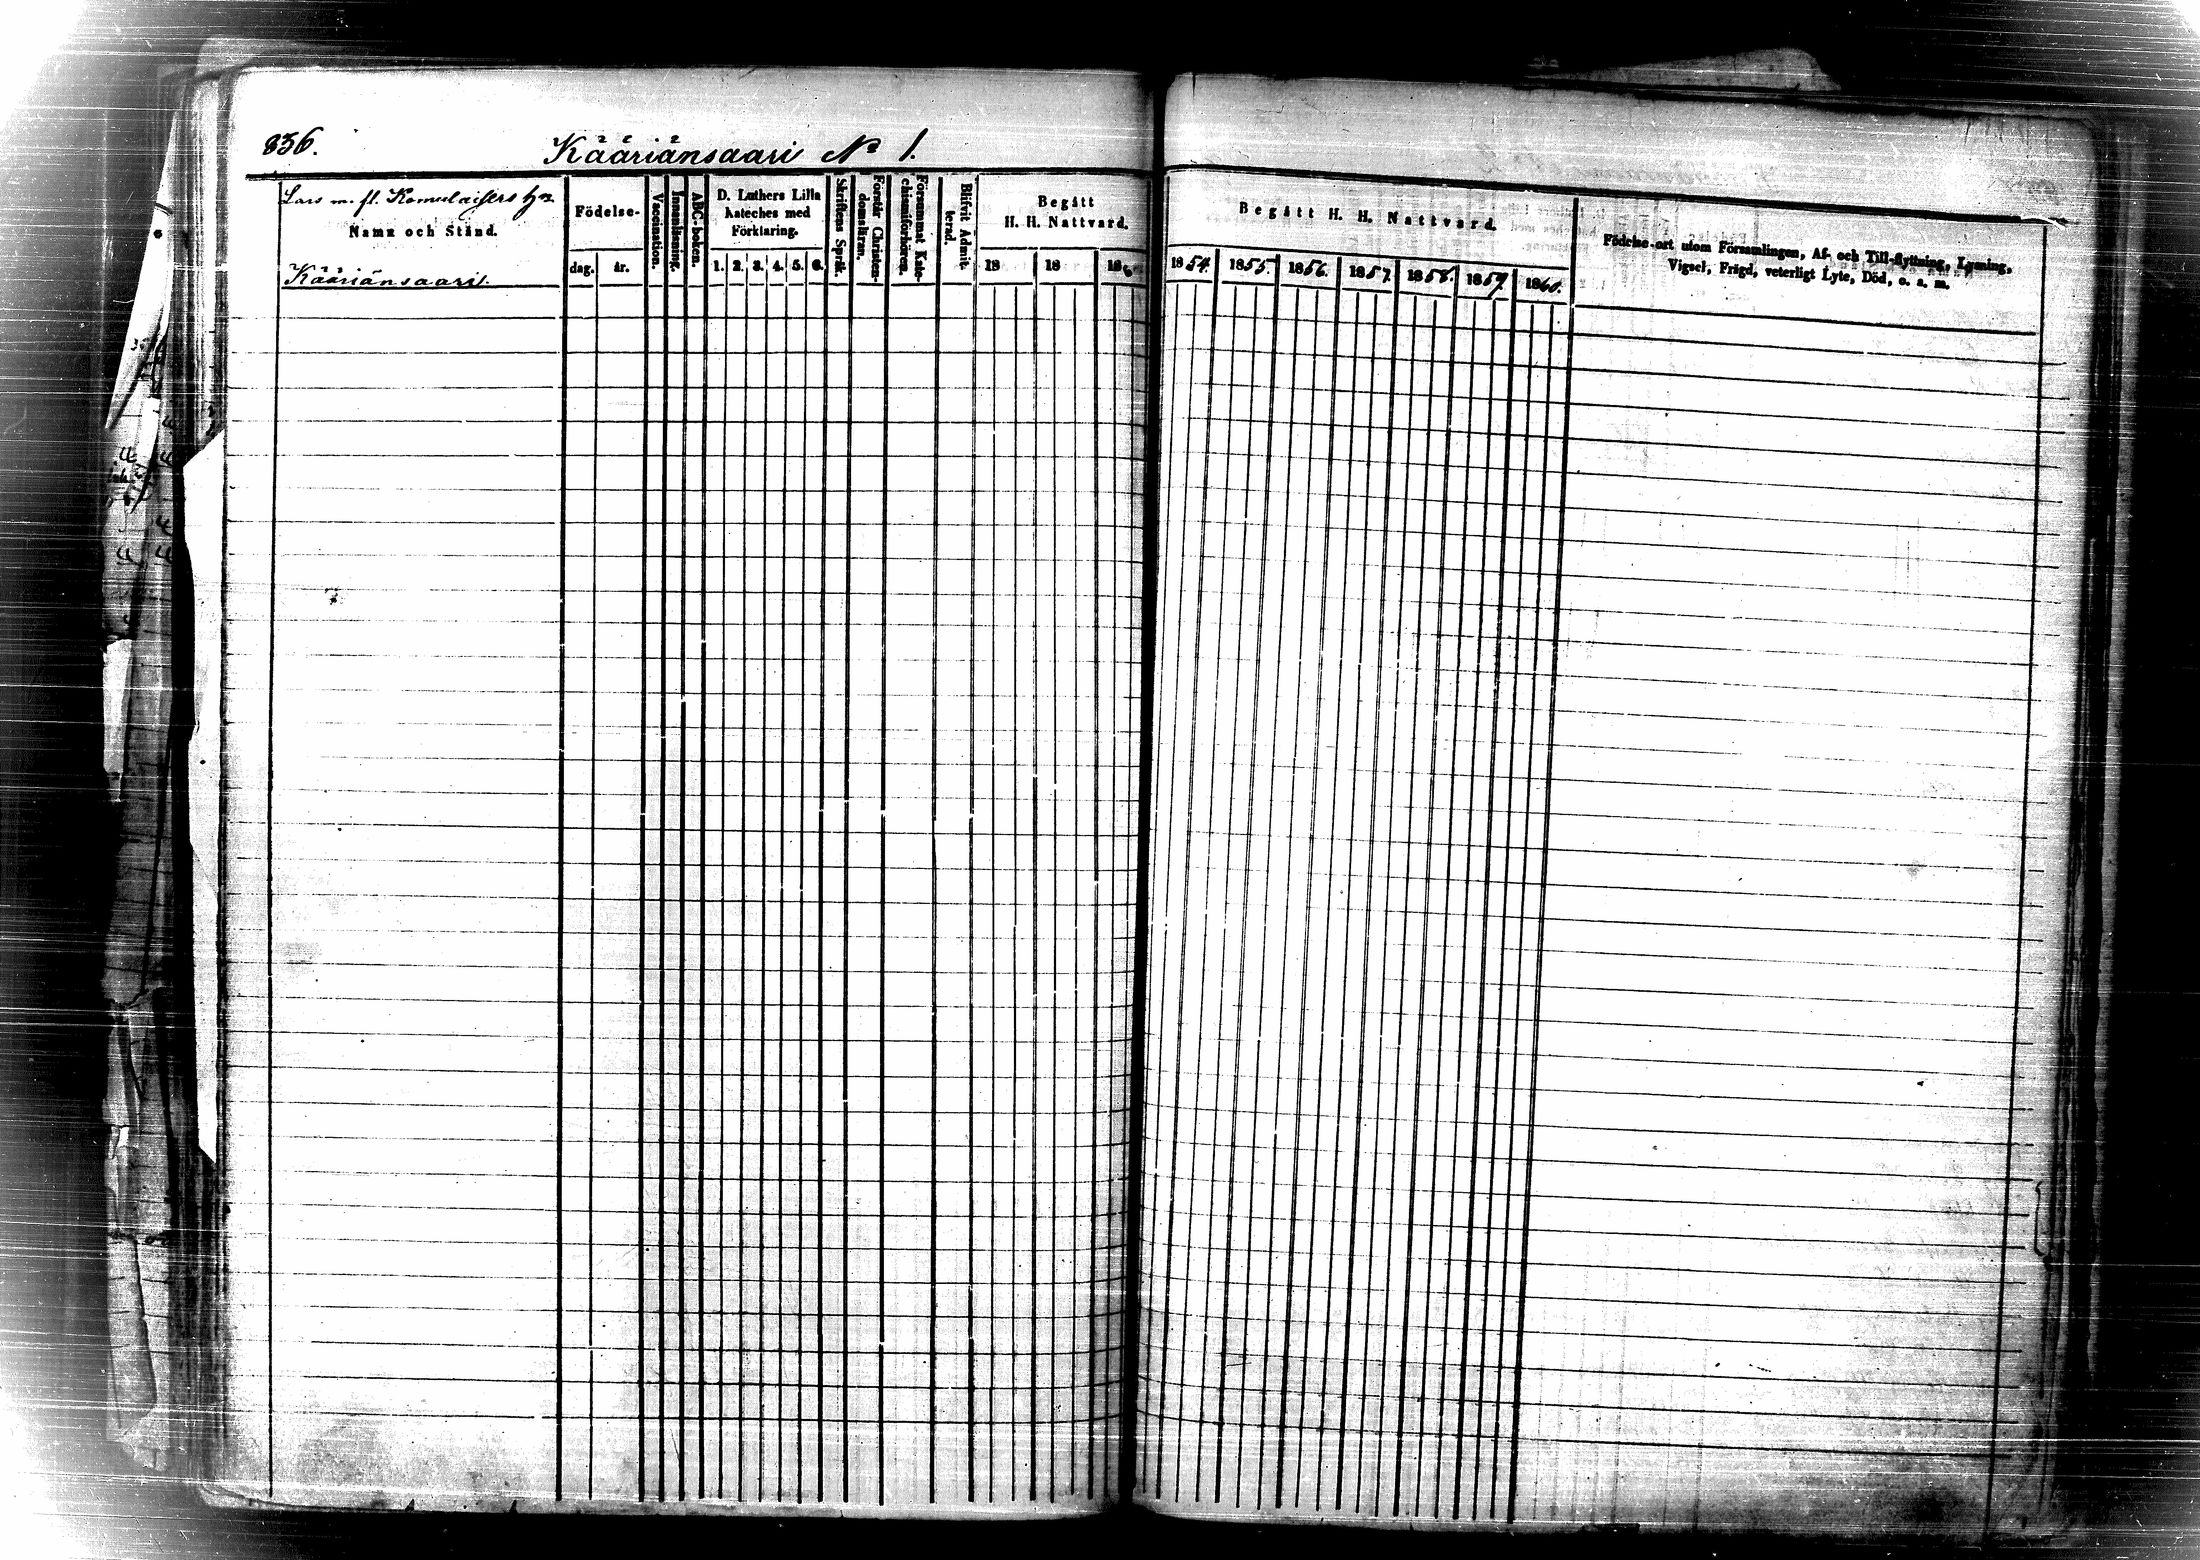 836.
Kääriänsaari No 1.
Lars m. fl. Komulaisers
Namn och Stånd.
Kääriänsaari.
Födelse-
dag. år.
Vaccination.
Innanläsning.
ABC-boken.
D. Luthers Lilla
Kateches med
Förklaring.
1. 2. 3. 4. 5. 6.
Skriftens Språk.
Förstår Christen-
domsläran.
Försummat Kate-
chismiförhören.
Blifvit Admit-
terad.
Begått
H. H. Nattvard.
18 18 18
Begått H. H. Nattvard.
1854. 1855. 1856. 1857. 1858. 1859. 1860.
Födelse-ort utom Församlingen, Af- och Till-flyttning, Lysning,
Vigsel, Frigd, veterligt Lyte, Död, o. s. m.